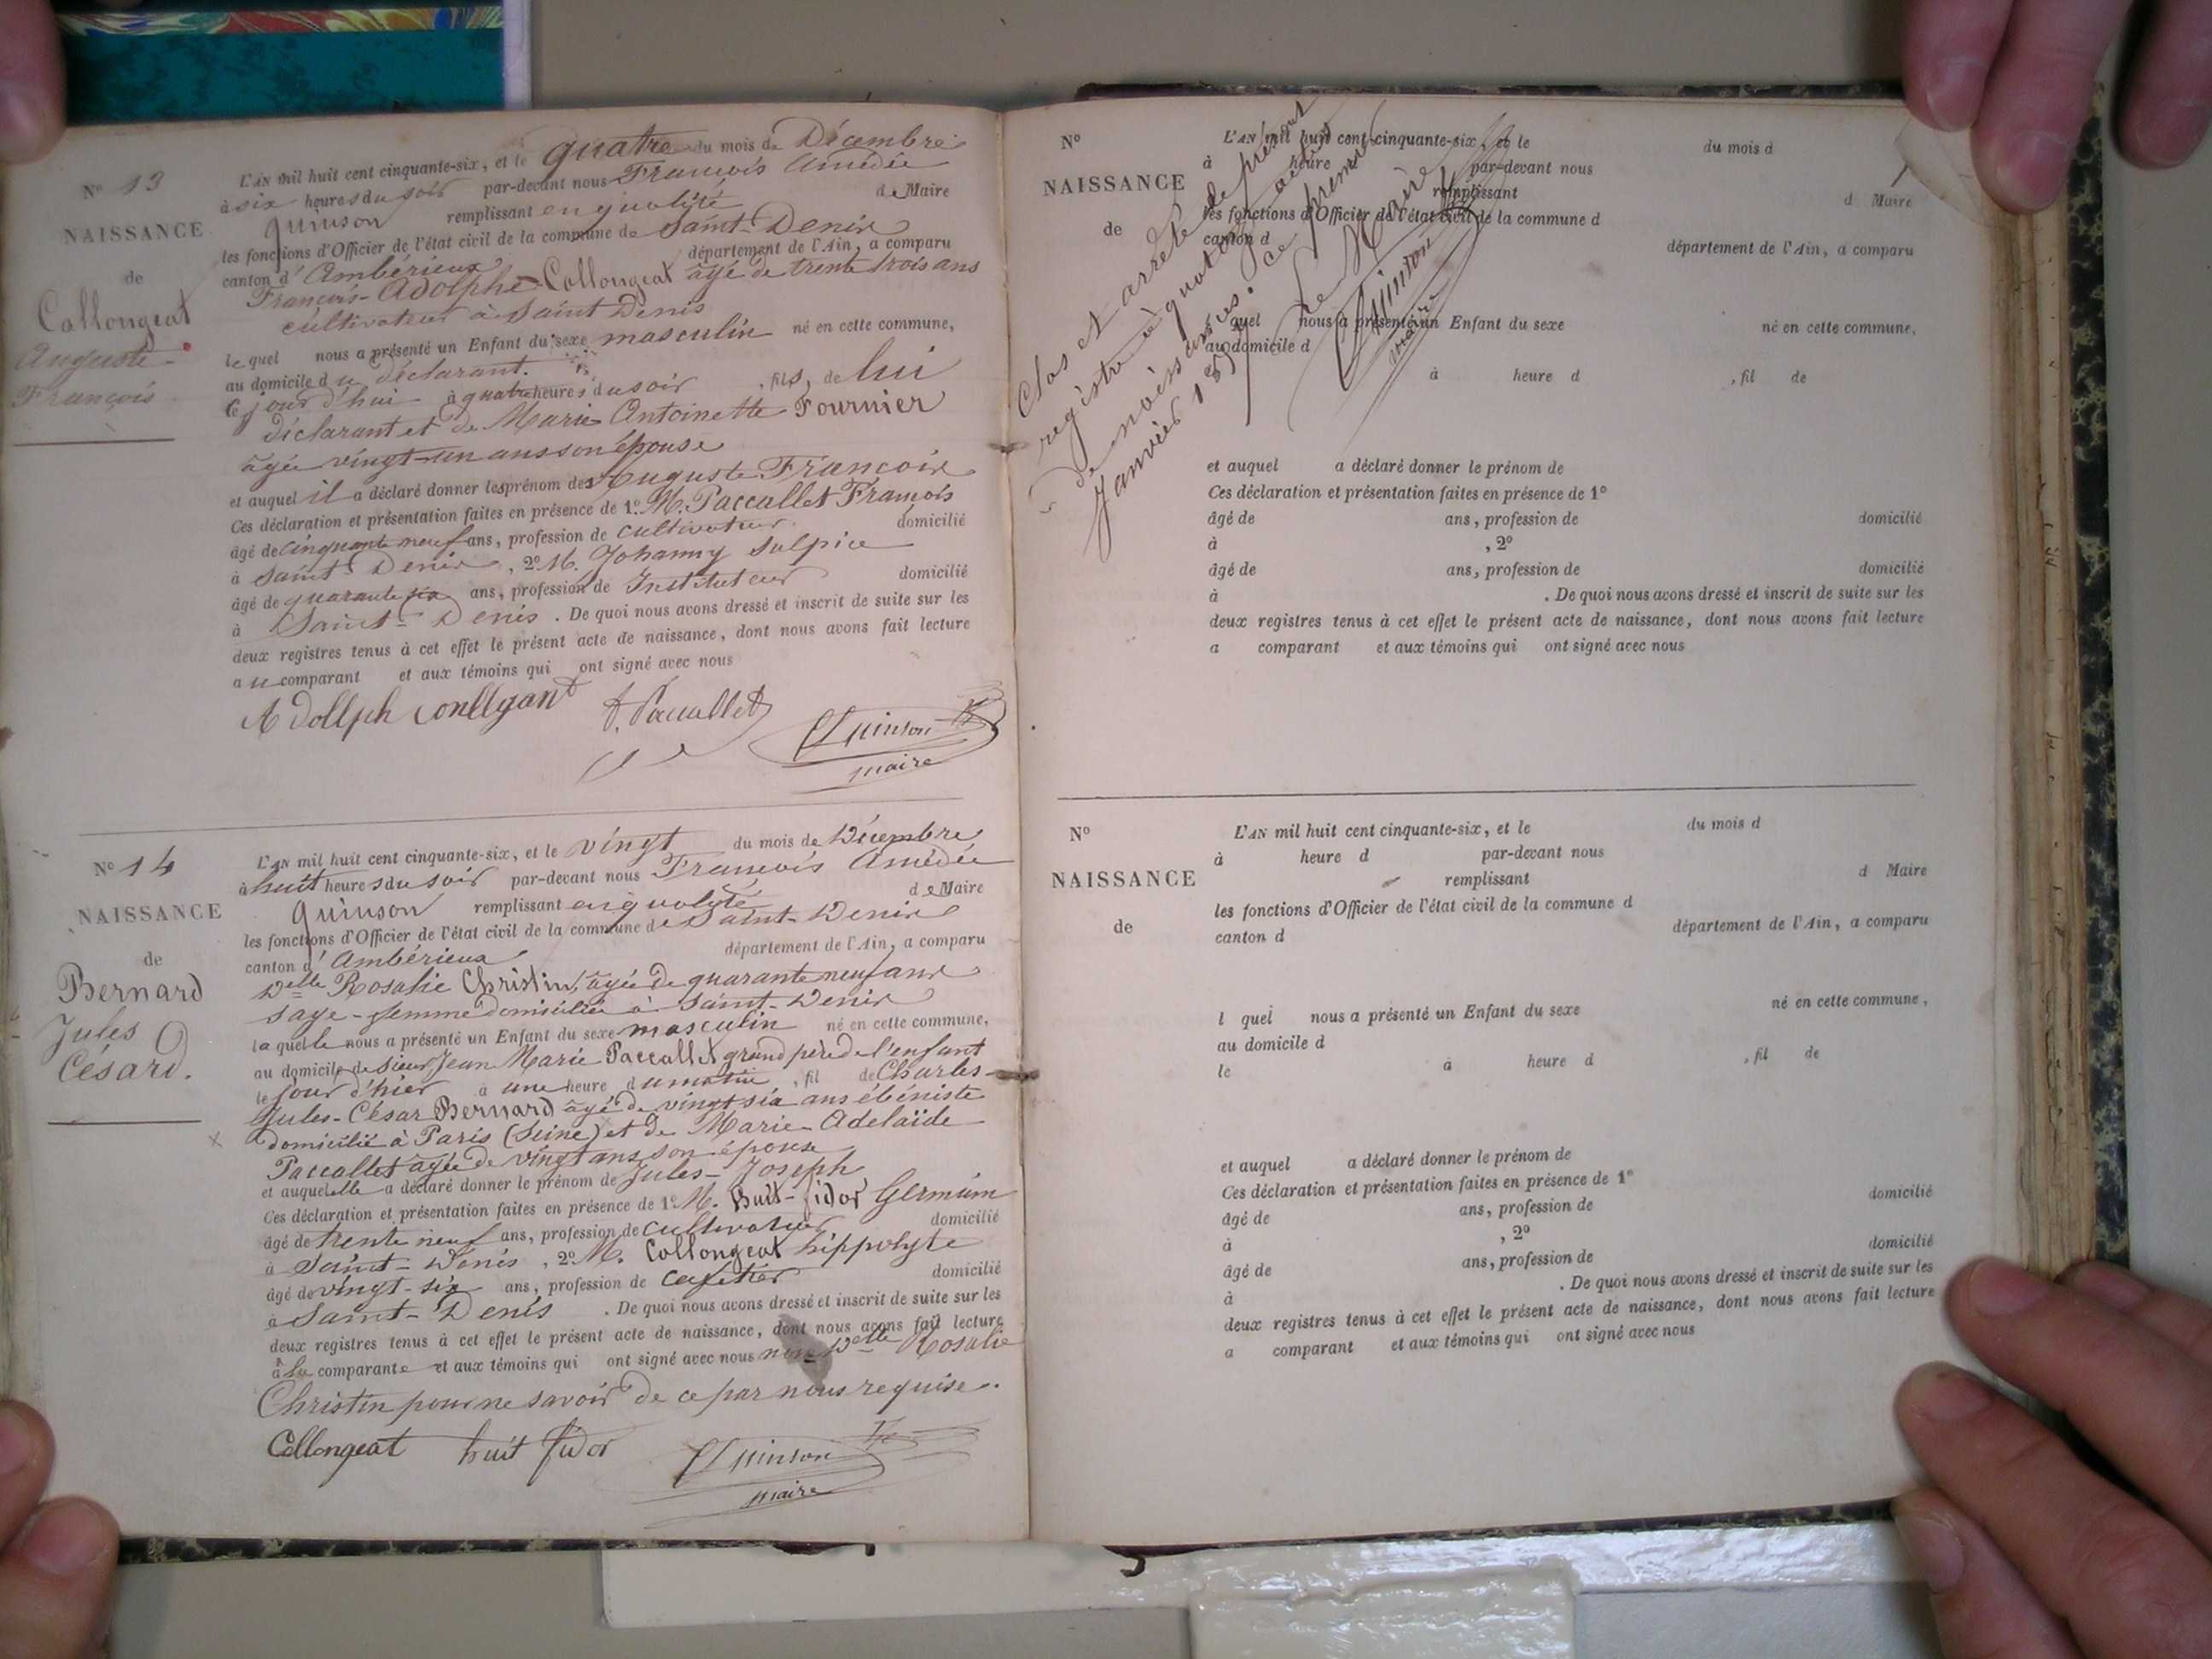 N° 13
NAISSANCE
de
Collongeat
Auguste
François
L'AN mil huit cent cinquante-six, et le quatre du mois de Décembre
à six heures du soir par-devant nous François Amédée
Quinson remplissant en qualité de Maire
les fonctions d'Officier de l'état civil de la commune de Saint-Denis
canton d'Ambérieux département de l'Ain, a comparu
François-Adolphe Collongeat âgé de trente trois ans
cultivateur à Saint Denis
le quel nous a présenté un Enfant du sexe masculin né en cette commune,
au domicile du déclarant.
le jour d'hui à quatre heures du soir, fils, de lui
déclarant et de Marie Antoinette Fournier
âgée vingt-un ans son épouse
et auquel il a déclaré donner les prénom de Auguste François
Ces déclaration et présentation faites en présence de 1° M. Paccallet François
âgé de cinquante neuf ans, profession de cultivateur domicilié
à Saint-Denis, 2° M. Johanny Sulpice
âgé de quarante six ans, profession de Instituteur domicilié
à Saint-Denis. De quoi nous avons dressé et inscrit de suite sur les
deux registres tenus à cet effet le présent acte de naissance, dont nous avons fait lecture
au comparant et aux témoins qui ont signé avec nous
Adollph Conllgant F. Paccallet
Quinson
maire
N° 14
NAISSANCE
de
Bernard
Jules
César.
L'AN mil huit cent cinquante-six, et le vingt du mois de Décembre
à huit heures du soir par-devant nous François Amédée
Quinson remplissant en qualité de Maire
les fonctions d'Officier de l'état civil de la commune de Saint-Denis
canton d'Ambérieux département de l'Ain, a comparu
Delle Rosalie Christin, âgée de quarante neuf ans
sage-femme domiciliée à Saint-Denis
laquelle nous a présenté un Enfant du sexe masculin né en cette commune,
au domicile de sieur Jean Marie Paccallet grand père de l'enfant
le jour d'hier à une heure du matin, fil de Charles-
Jules-César Bernard âgé de vingt six ans ébéniste
domicilié à Paris (Seine) et de Marie-Adelaïde
Paccallet âgée de vingt ans son épouse
et auquel elle a déclaré donner le prénom de Jules-Joseph
Ces déclaration et présentation faites en présence de 1° M. Buit-fidor Germain
âgé de trente neuf ans, profession de cultivateur domicilié
à Saint-Denis, 2° M. Collongeat hippolyte
âgé de vingt-six ans, profession de cafetier domicilié
à Saint-Denis. De quoi nous avons dressé et inscrit de suite sur les
deux registres tenus à cet effet le présent acte de naissance, dont nous avons fait lecture
à la comparante et aux témoins qui ont signé avec nous non Delle Rosalie
Christin pour ne savoir de ce par nous requise.
Collongeat buit fidor Quinson
maire
Clos et arrêté le présent
registre à quatorze actes
de naissances. ce premier
Janvier 185
Le Maire
Quinson
maire
N°
NAISSANCE
de
L'AN mil huit cent cinquante-six, et le du mois d
à heure par-devant nous
remplissant d Maire
les fonctions d'Officier de l'état civil de la commune d
canton d département de l'Ain, a comparu
quel nous a présenté un Enfant du sexe né en cette commune,
au domicile d
à heure d , fil de
et auquel a déclaré donner le prénom de
Ces déclaration et présentation faites en présence de 1°
âgé de ans, profession de domicilié
à , 2°
âgé de ans, profession de domicilié
à . De quoi nous avons dressé et inscrit de suite sur les
deux registres tenus à cet effet le présent acte de naissance, dont nous avons fait lecture
a comparant et aux témoins qui ont signé avec nous
N°
NAISSANCE
de
L'AN mil huit cent cinquante-six, et le du mois d
à heure d par-devant nous
remplissant d Maire
les fonctions d'Officier de l'état civil de la commune d
canton d département de l'Ain, a comparu
l quel nous a présenté un Enfant du sexe né en cette commune,
au domicile d
le à heure d , fil de
et auquel a déclaré donner le prénom de
Ces déclaration et présentation faites en présence de 1°
âgé de ans, profession de domicilié
à , 2°
âgé de ans, profession de domicilié
à . De quoi nous avons dressé et inscrit de suite sur les
deux registres tenus à cet effet le présent acte de naissance, dont nous avons fait lecture
a comparant et aux témoins qui ont signé avec nous